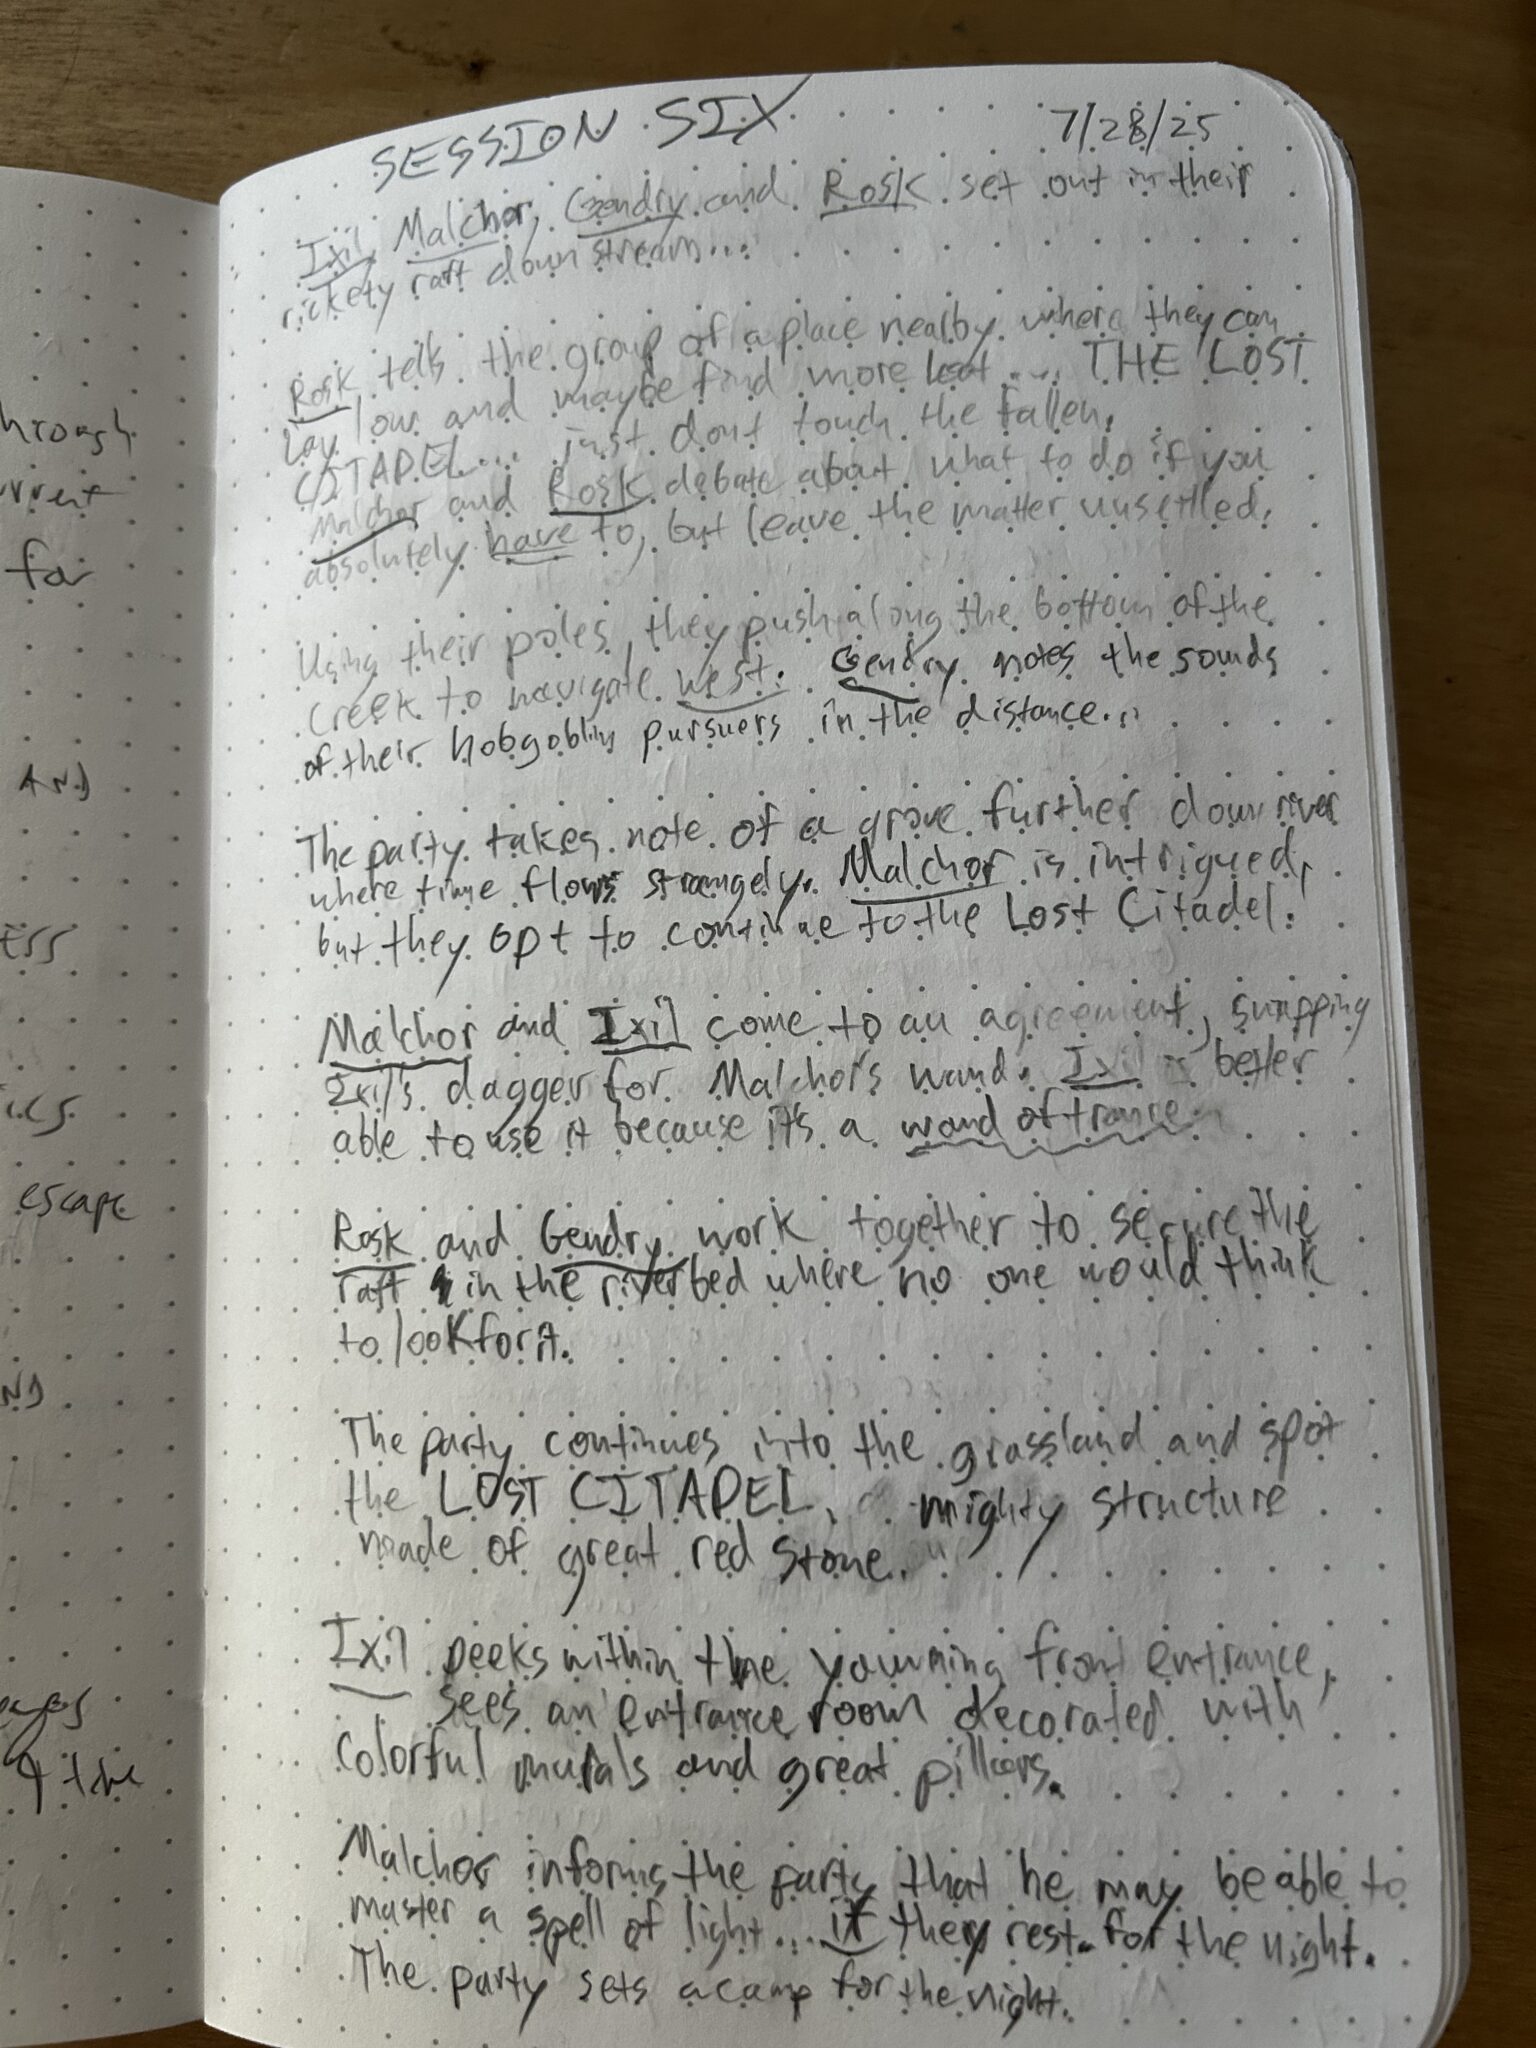 hrough
urrent
for
AND
ESS
ics
escape
ND
the
SESSION SIX 7/28/25
Ixil, Malchor, Gendry and Rosk set out in their
rickety raft down stream...
Rosk tells the group of a place nearby where they can
lay low and maybe find more loot.... THE LOST
CITADEL... just dont touch the fallen.
Malchor and Rosk debate about what to do if you
absolutely have to, but leave the matter unsettled.
Using their poles, they push along the bottom of the
creek to navigate west. Gendry notes the sounds
of their hobgoblin pursuers in the distance...
The party takes note of a grove further down river
where time flows strangely. Malchor is intrigued,
but they opt to continue to the Lost Citadel.
Malchor and Ixil come to an agreement, swapping
Ixil's dagger for Malchor's wand. Ixil is better
able to use it because it's a wand of trance.
Rosk and Gendry work together to secure the
raft in the riverbed where no one would think
to look for it.
The party continues into the grassland and spot
the LOST CITADEL, a mighty structure
made of great red stone.
Ixil peeks within the yawning front entrance,
sees an entrance room decorated with
colorful murals and great pillars.
Malchor informs the party that he may be able to
master a spell of light... if they rest for the night.
The party sets a camp for the night.